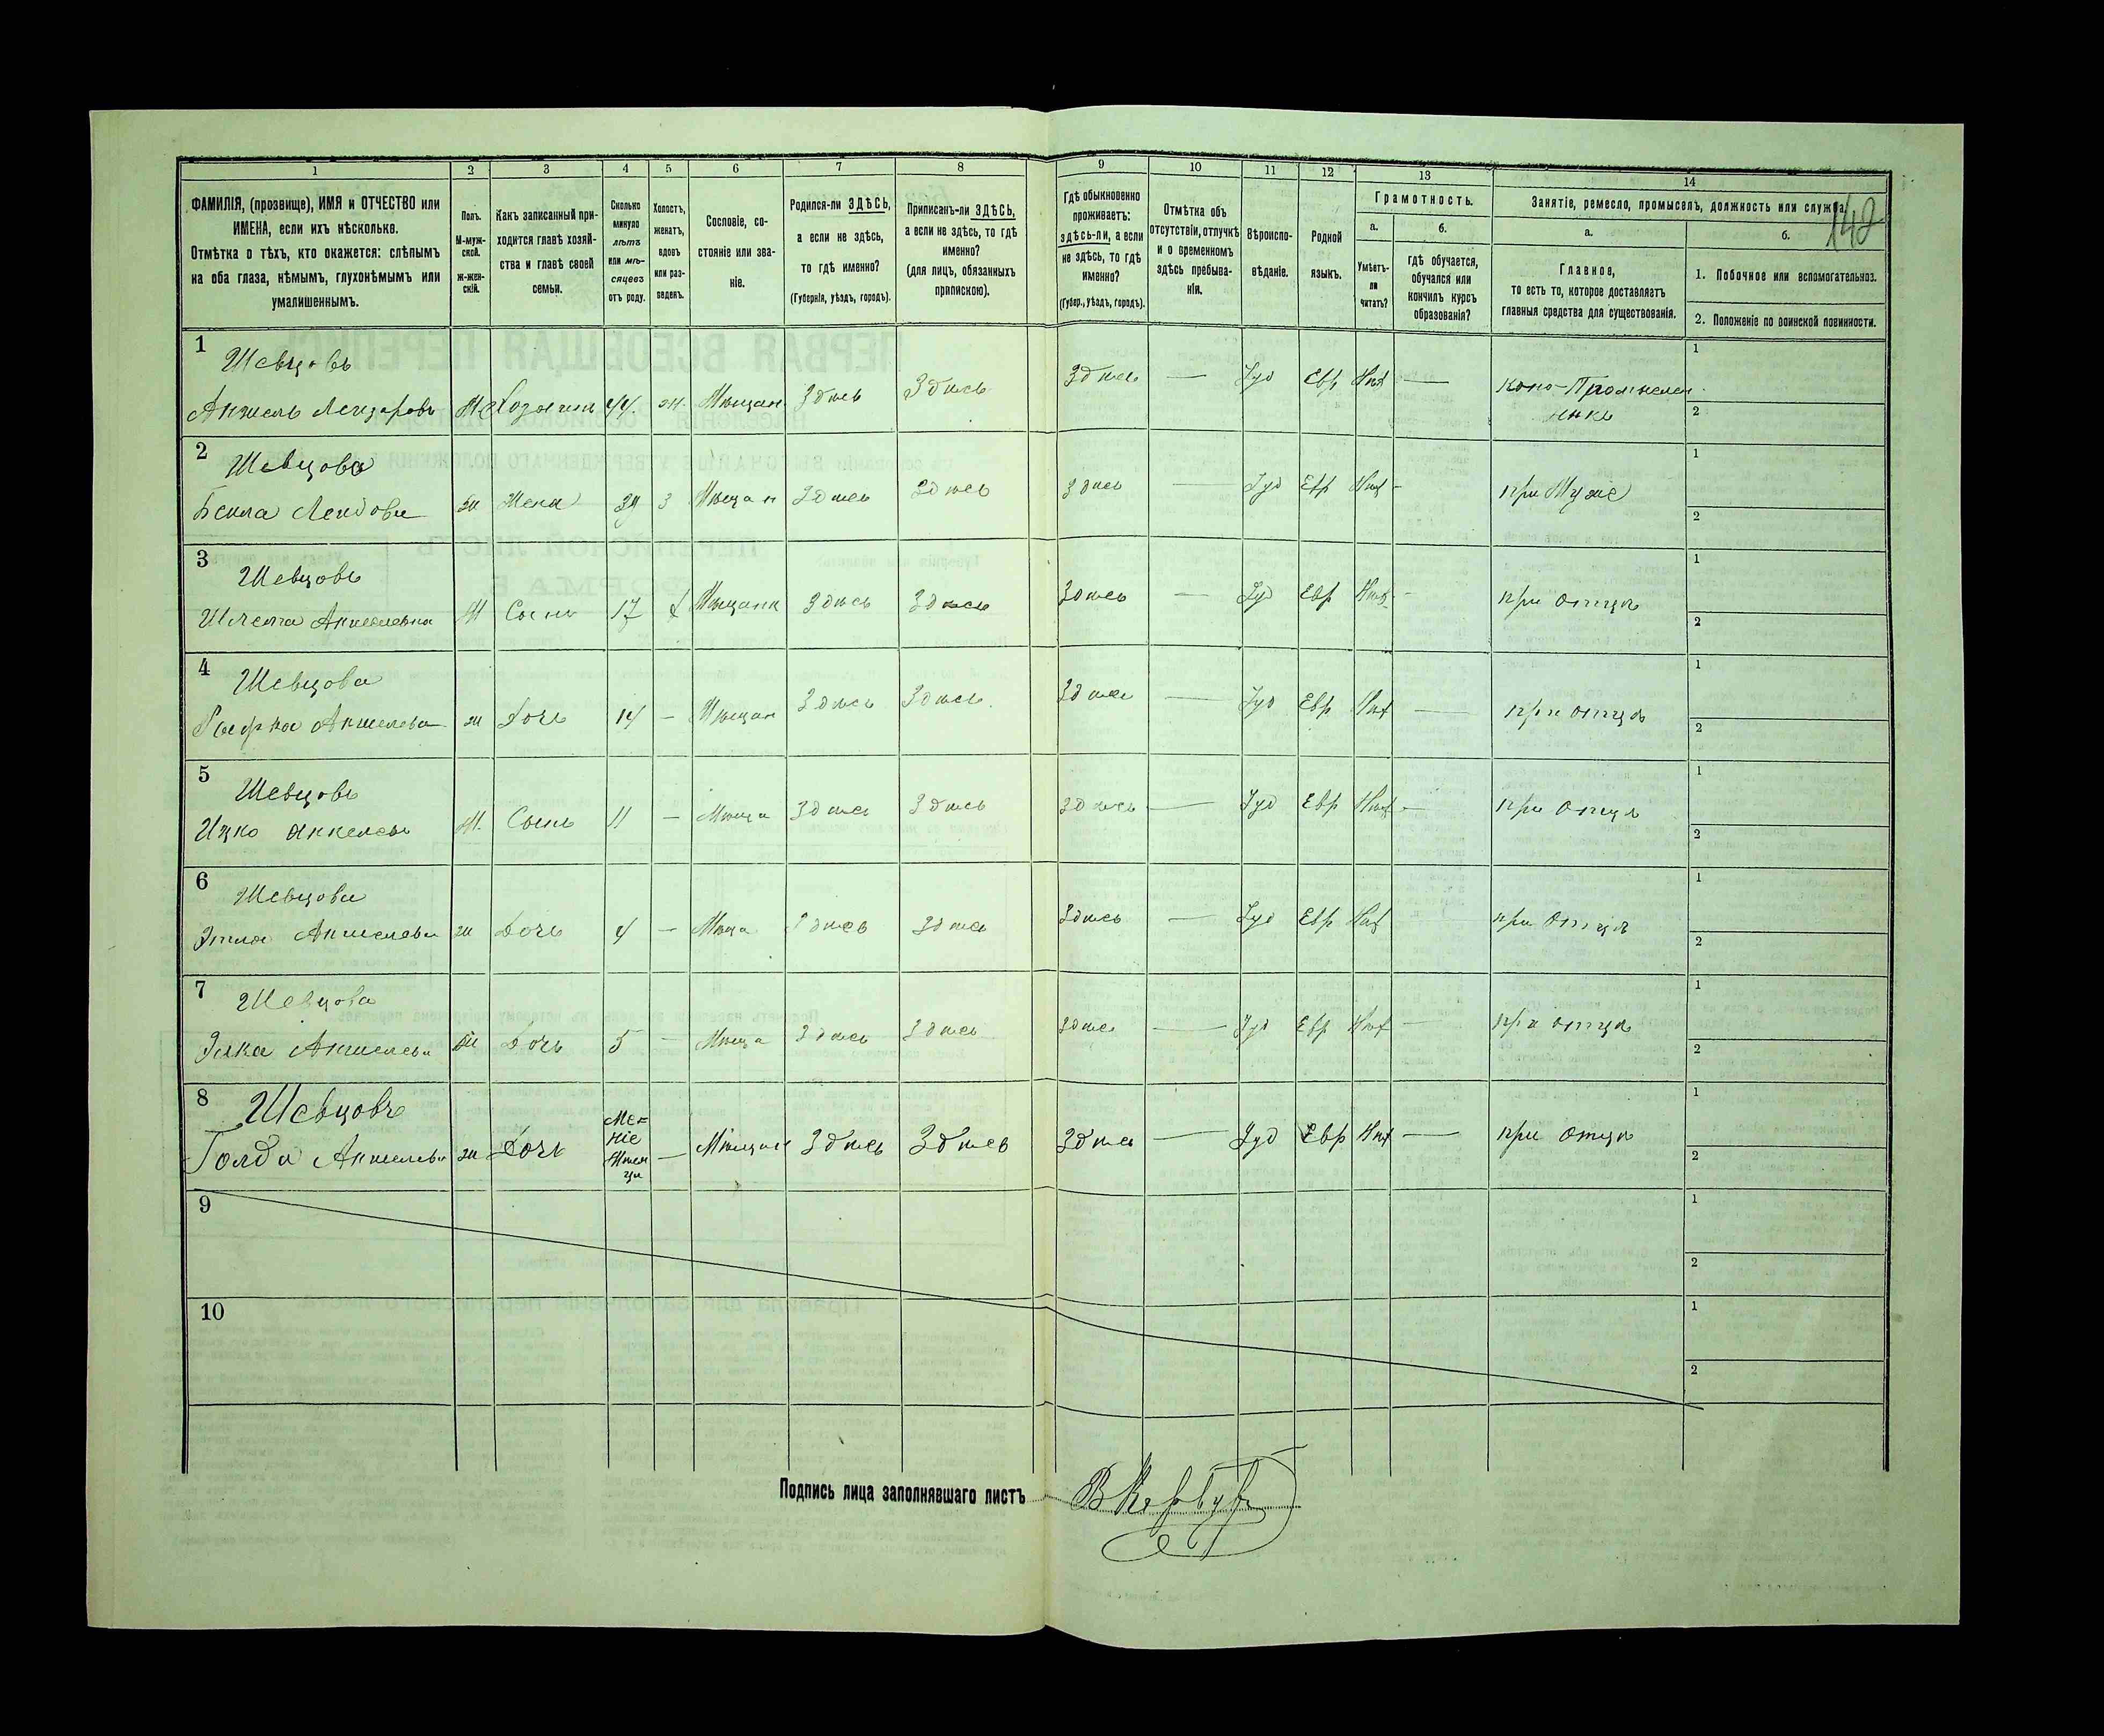 1 2 3 4 5 6 7 8 9 10 11 12 13 14
ФАМИЛІЯ, (прозвище), ИМЯ и ОТЧЕСТВО или
ИМЕНА, если ихъ нѣсколько.
Отмѣтка о тѣхъ, кто окажется: слѣпымъ
на оба глаза, нѣмымъ, глухонѣмымъ или
умалишеннымъ.
Полъ.
М-муж-
ской.
Ж-жен-
скій.
Какъ записанный при-
ходится главѣ хозяй-
ства и главѣ своей
семьи.
Сколько
минуло
лѣтъ
или мѣ-
сяцевъ
отъ роду.
Холостъ,
женатъ,
вдовъ
или раз-
веденъ.
Сословіе, со-
стояніе или зва-
ніе.
Родился-ли ЗДѢСЬ,
а если не здѣсь,
то гдѣ именно?
(Губернія, уѣздъ, городъ).
Приписанъ-ли ЗДѢСЬ,
а если не здѣсь, то гдѣ
именно?
(для лицъ, обязанныхъ
припискою).
Гдѣ обыкновенно
проживаетъ:
здѣсь-ли, а если
не здѣсь, то гдѣ
именно?
(Губер., уѣздъ, городъ).
Отмѣтка объ
отсутствіи, отлучкѣ
и о временномъ
здѣсь пребыва-
ніи.
Вѣроиспо-
вѣданіе.
Родной
языкъ.
Грамотность.
а.
Умѣетъ-
ли
читать?
б.
гдѣ обучается,
обучался или
кончилъ курсъ
образованія?
Занятіе, ремесло, промыселъ, должность или служба.
142
а.
Главное,
то есть то, которое доставляетъ
главныя средства для существованія.
б.
1. Побочное или вспомогательное.
2. Положеніе по воинской повинности.
1 Шевцовъ
Анжель М Хозяинъ 44. ж. Мѣщан Здѣсь Здѣсь Здѣсь — Іуд Евр Нѣт —
1
2
2 Шевцова
Бейла ж Жена 39 З Мѣщан Здѣсь Здѣсь Здѣсь — Іуд Евр Нѣт — при Муже
1
2
3 Шевцовъ
М Сынъ 17 Х Мѣщанин Здѣсь Здѣсь Здѣсь — Іуд Евр Нѣт — при отцѣ
1
2
4 Шевцова
ж Дочь 14 — Мѣщан Здѣсь Здѣсь Здѣсь — Іуд Евр Нѣт — при отцѣ
1
2
5 Шевцовъ
Ицко М. Сынъ 11 — Мѣща Здѣсь Здѣсь Здѣсь — Іуд Евр Нѣт — при отцѣ
1
2
6 Шевцова
Этля ж Дочь — Мѣща Здѣсь Здѣсь Здѣсь — Іуд Евр Нѣт при отцѣ
1
2
7 Шевцова
Элка ж Дочь 5 — Мѣща Здѣсь Здѣсь Здѣсь — Іуд Евр Нѣт — при отцѣ
1
2
8 Шевцовъ
Голда ж Дочь — Мѣщан Здѣсь Здѣсь Здѣсь — Іуд Евр Нѣт — при отцѣ
1
2
9
1
2
10
1
2
Подпись лица заполнявшаго листъ